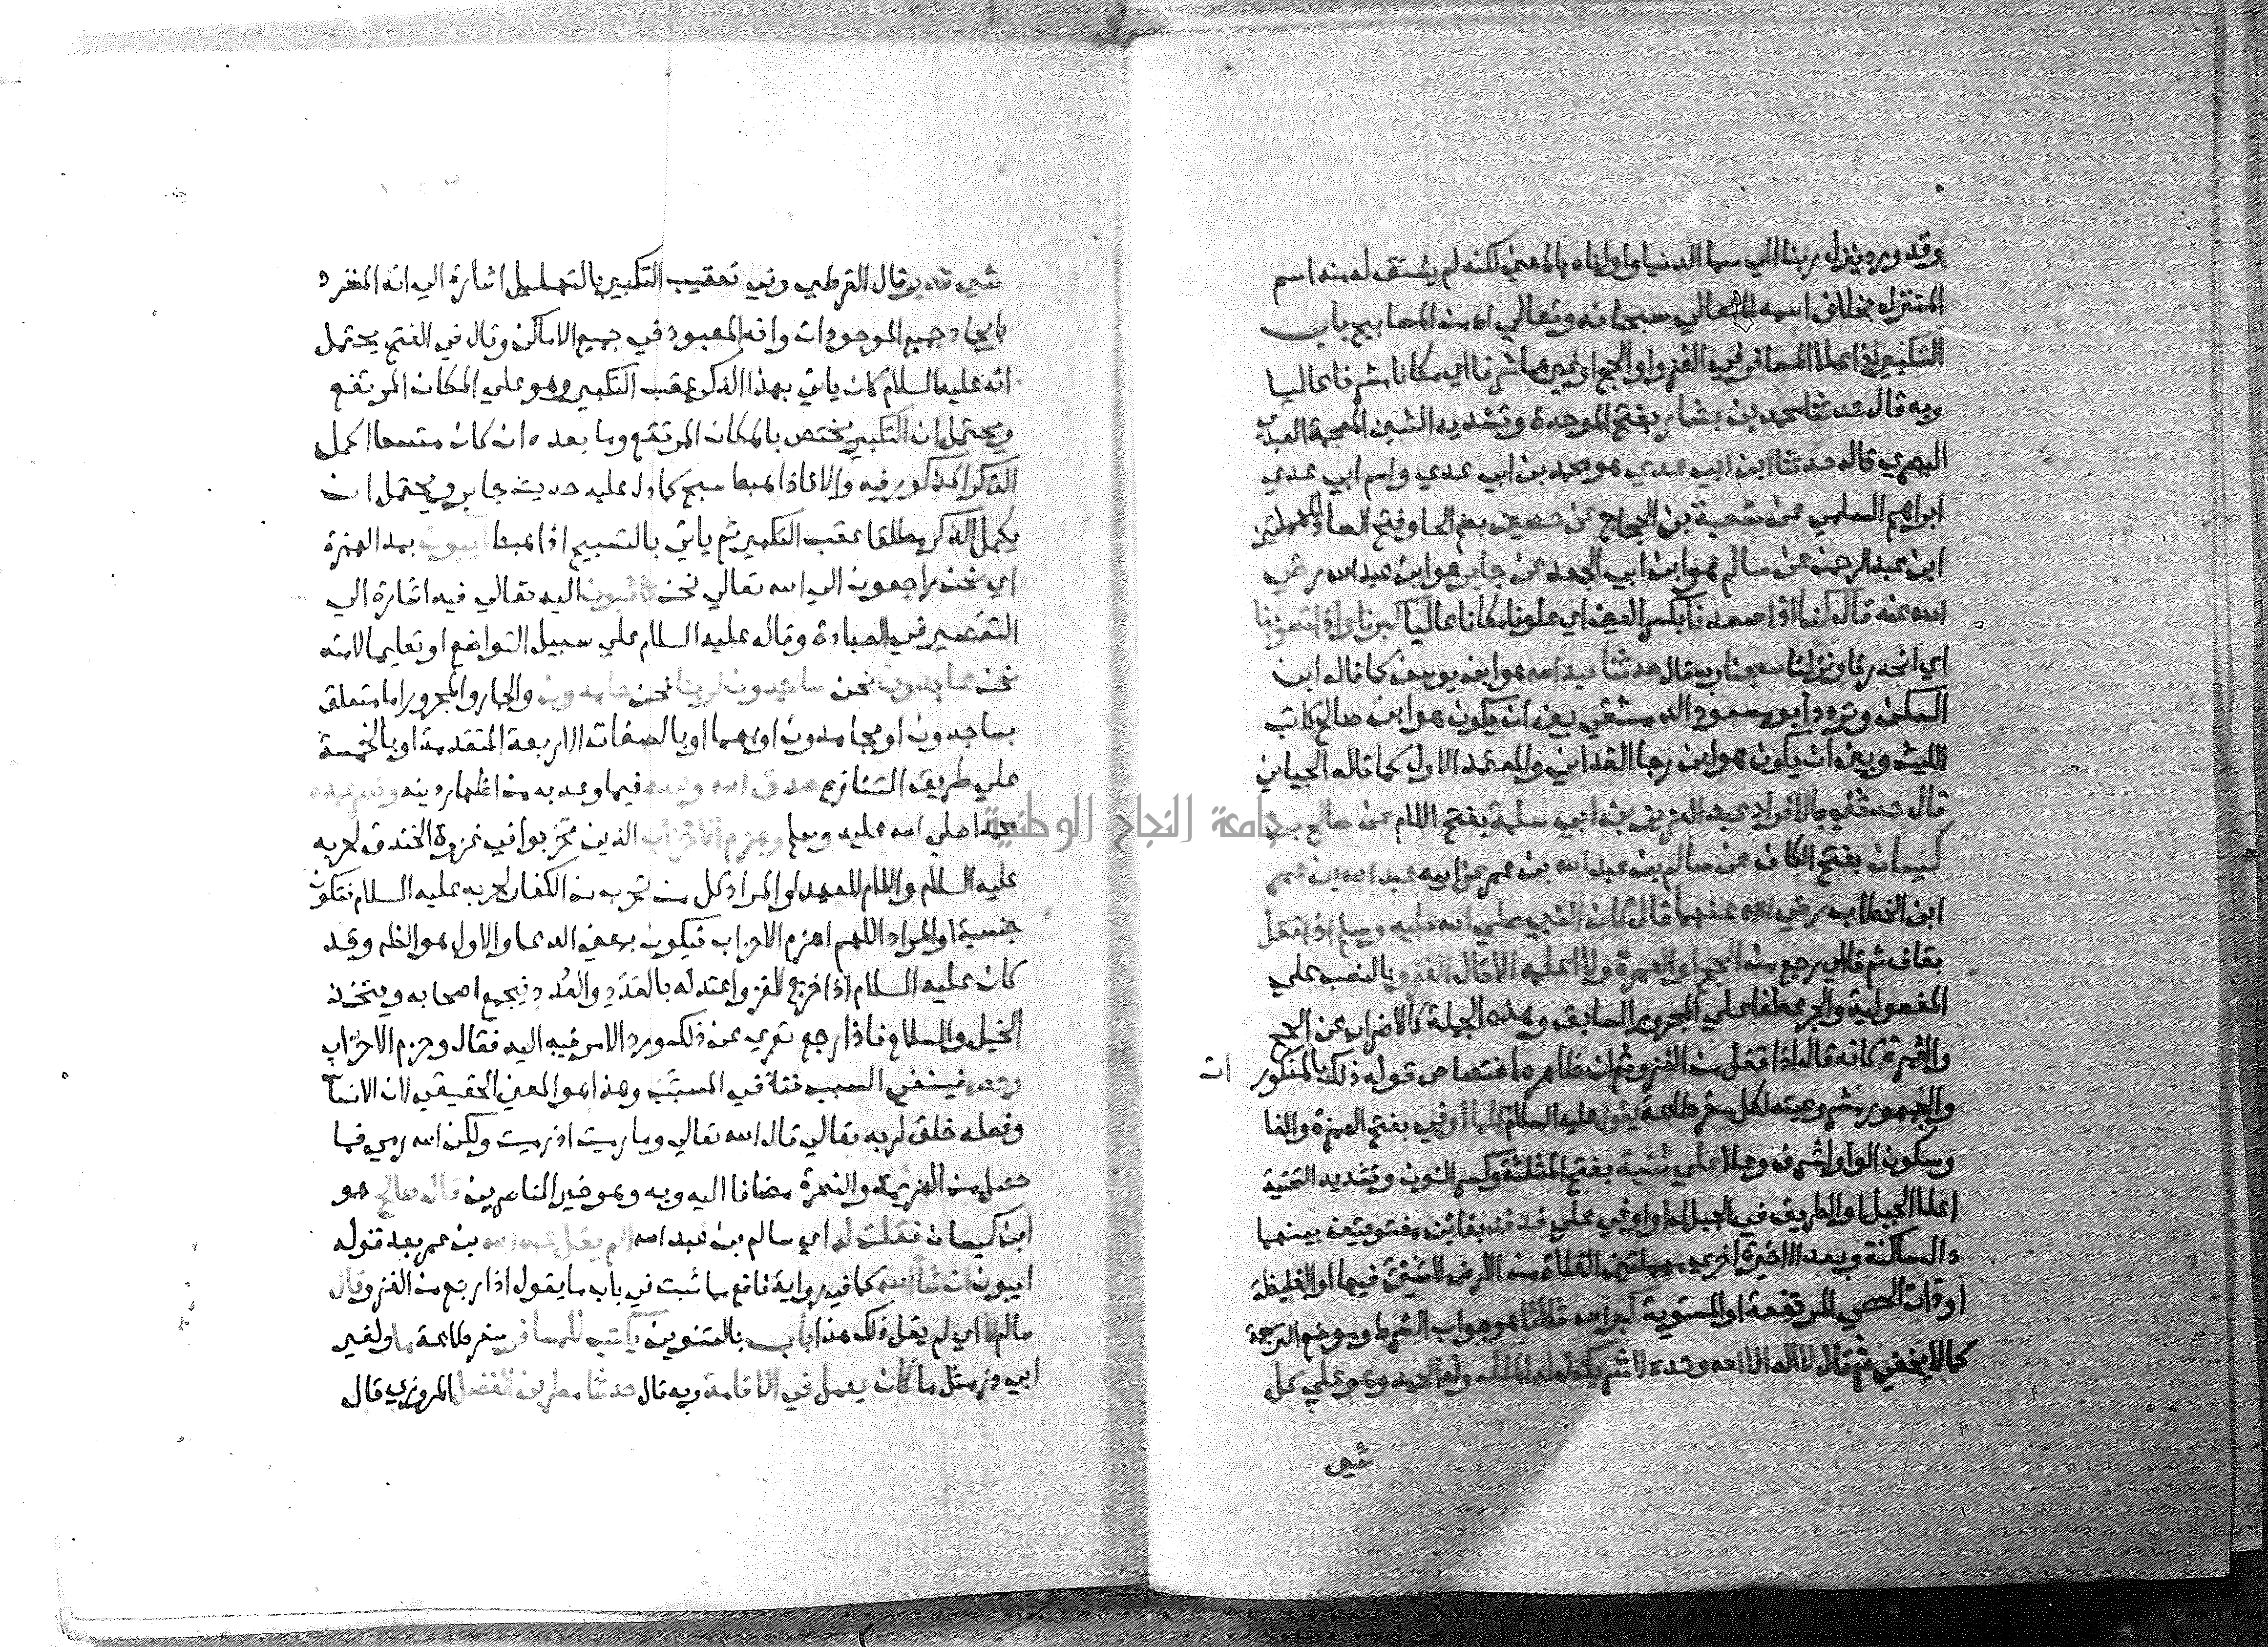 وقد ورد ينزل ربنا الي سما الدنيا واولناه بالمعني لكنه لم يشتق له منه اسم
المتنزل بخلاف اسمه المتعالي سبحانه وتعالي اه من المصابيح باب
التكبير اذا علا المسافر في الغزو او الحج او غيرهما شرفا اي مكانا مشرفا عاليا
وبه قال حدثنا محمد بن بشار بفتح الموحدة وتشديد الشين المعجمة العبدي
البصري قال حدثنا ابن ابي عدي هو محمد بن ابي عدي واسم ابي عدي
ابراهيم السلمي عن شعبة بن الحجاج عن حصين بضم الحا وفتح الصاد المهملتين
ابن عبد الرحمن عن سالم هو ابن ابي الجعد عن جابر هو ابن عبد الله رضي
الله عنه قال كنا اذا صعدنا بكسر العين اي علونا مكانا عاليا كبرنا واذا تصوبنا
اي انحدرنا ونزلنا سبحنا وبه قال حدثنا عبد الله هو ابن يوسف كما قاله ابن
السكن وتردد ابو مسعود الدمشقي بين ان يكون هو ابن صالح كاتب
الليث وبين ان يكون هو ابن رجا الغداني والمعتمد الاول كما قاله الجياني
قال حدثني بالافراد عبد العزيز بن ابي سلمة بفتح اللام عن صالح بن
كيسان بفتح الكاف عن سالم بن عبد الله بن عمر عن ابيه عبد الله بن عمر
ابن الخطاب رضي الله عنهما قال كان النبي صلي الله عليه وسلم اذا قفل
بقاف ثم فا اي رجع من الحج او العمرة ولا اعلمه الا قال الغزو بالنصب علي
المفعولية والجر عطفا علي المجرور السابق وهذه الجملة كالاضراب عن الحج
والعمرة كانه قال اذا قفل من الغزو ثم ان ظاهره اختصاص قوله ذلك بالمذكور ات
والجمهور مشروعيته لكل سفر طاعة يقول عليه السلام كلما اوفي بفتح الهمزة والفا
وسكون الواو اشرف وعلا علي ثنية بفتح المثلثة وكسر النون وتشديد التحتية
اعلا الجبل او الطريق في الجبل او اوفي علي فدفد بفائين مفتوحتين بينهما
دال ساكنة وبعد الاخيرة اخري مهملتين الفلاة من الارض لا شي فيها او الغليظة
او ذات الحصي المرتفعة او المستوية كبر الله ثلاثا هو جواب الشرط وموضع الترجمة
كما لا يخفي ثم قال لا اله الا الله وحده لا شريك له له الملك وله الحمد وهو علي كل
شي
شي قدير قال القرطبي وفي تعقيب التكبير بالتهليل اشارة الي انه المنفرد
بايجاد جميع الموجودات وانه المعبود في جميع الاماكن وقال في الفتح يحتمل
انه عليه السلام كان ياتي بهذا الذكر عقب التكبير وهو علي المكان المرتفع
ويحتمل ان التكبير يختص بالمكان المرتفع وما بعده ان كان متسعا اكمل
الذكر المذكور فيه والا فاذا هبط سبح كما دل عليه حديث جابر ويحتمل ان
يكمل الذكر مطلقا عقب التكبير ثم ياتي بالتسبيح اذا هبط ايبون بمد الهمزة
اي نحن راجعون الي الله تعالي نحن تائبون اليه تعالي فيه اشارة الي
التقصير في العبادة وقاله عليه السلام علي سبيل التواضع او تعليما لامته
نحن عابدون نحن ساجدون لربنا نحن حامدون والجار والمجرور اما متعلق
بساجدون او بحامدون او بهما او بالصفات الاربعة المتقدمة او بالخمسة
علي طريق التنازع صدق الله وعده فيما وعد به من اظهار دينه ونصر عبده
محمدا صلي الله عليه وسلم وهزم الاحزاب الذين تحزبوا في غزوة الخندق لحربه
عليه السلام واللام للعهد او المراد كل من تحزب من الكفار لحربه عليه السلام فتكون
جنسية او المراد اللهم اهزم الاحزاب فيكون بمعني الدعا والاول هو الظاهر وقد
كان عليه السلام اذا خرج للغزو اعتد له بالعَدَد والعُدد فيجمع اصحابه ويتخذ
الخيل والسلاح فاذا رجع تعري عن ذلك ورد الامر فيه اليه فقال وهزم الاحزاب
وحده فينفي السبب فنا في المسبِّب وهذا هو المعني الحقيقي لان الانسان
وفعله خلق لربه تعالي قال الله تعالي وما رميت اذ رميت ولكن الله رمي فما
حصل من الهزيمة والنصرة مضافا اليه وبه وهو خير الناصرين قال صالح هو
ابن كيسان فقلت له اي سالم بن عبد الله الم يقل عبد الله بن عمر بعد قوله
ايبون ان شا الله كما في رواية نافع مما ثبت في باب ما يقول اذا رجع من الغزو قال
سالم لا اي لم يقل ذلك هذا باب بالتنوين يكتب للمسافر سفر طاعة ما ولغير
ابي ذر مثل ما كان يعمل في الاقامة وبه قال حدثنا مطر بن الفضل المروزي قال
جامعة النجاح الوطنية